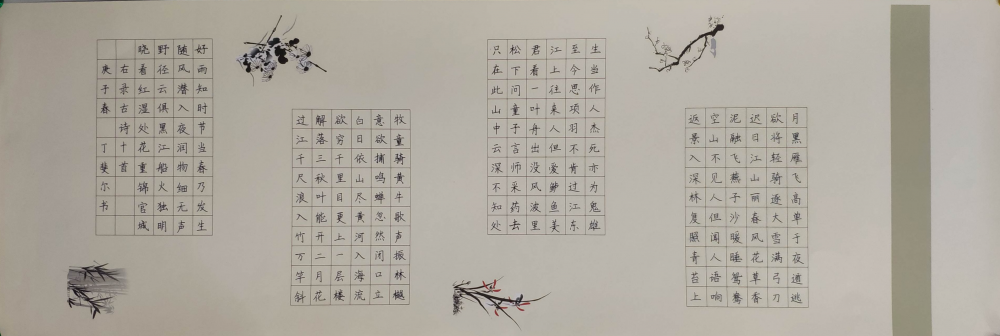 月黑雁飞高单于夜遁逃
欲将轻骑逐大雪满弓刀
迟日江山丽春风花草香
泥融飞燕子沙暖睡鸳鸯
空山不见人但闻人语响
返景入深林复照青苔上
生当作人杰死亦为鬼雄
至今思项羽不肯过江东
江上往来人但爱鲈鱼美
君看一叶舟出没风波里
松下问童子言师采药去
只在此山中云深不知处
牧童骑黄牛歌声振林樾
意欲捕鸣蝉忽然闭口立
白日依山尽黄河入海流
欲穷千里目更上一层楼
解落三秋叶能开二月花
过江千尺浪入竹万竿斜
好雨知时节当春乃发生
随风潜入夜润物细无声
野径云俱黑江船火独明
晓看红湿处花重锦官城
右录古诗十首
庚子春 丁斐尔书